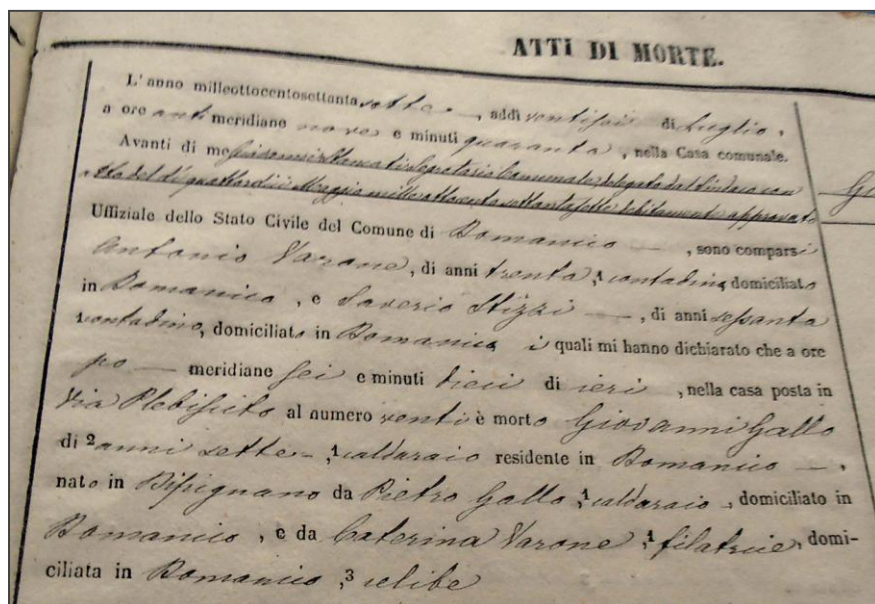 ATTI DI MORTE.
L'anno milleottocentosettanta sette —, addì ventisei di Luglio,
a ore anti meridiane nove e minuti quaranta, nella Casa comunale.
Avanti di me Segretario Comunale delegato dal Sindaco con
atto del dì quattordici Maggio mille ottocento settantasette debitamente approvato
Uffiziale dello Stato Civile del Comune di Romanico —, sono comparsi
Antonio Varone, di anni trenta, ¹ contadino domiciliato
in Romanico, e Saverio Stizzi —, di anni sessanta
¹ contadino, domiciliato in Romanico i quali mi hanno dichiarato che a ore
po — meridiane sei e minuti dieci di ieri, nella casa posta in
Via Plebiscito al numero venti è morto Giovanni Gallo
di ² anni sette —, ¹ caldaraio residente in Romanico —,
nato in Bisignano da Pietro Gallo, ¹ caldaraio, domiciliato in
Romanico, e da Caterina Varone, ¹ filatrice, domi-
ciliata in Romanico, ³ celibe